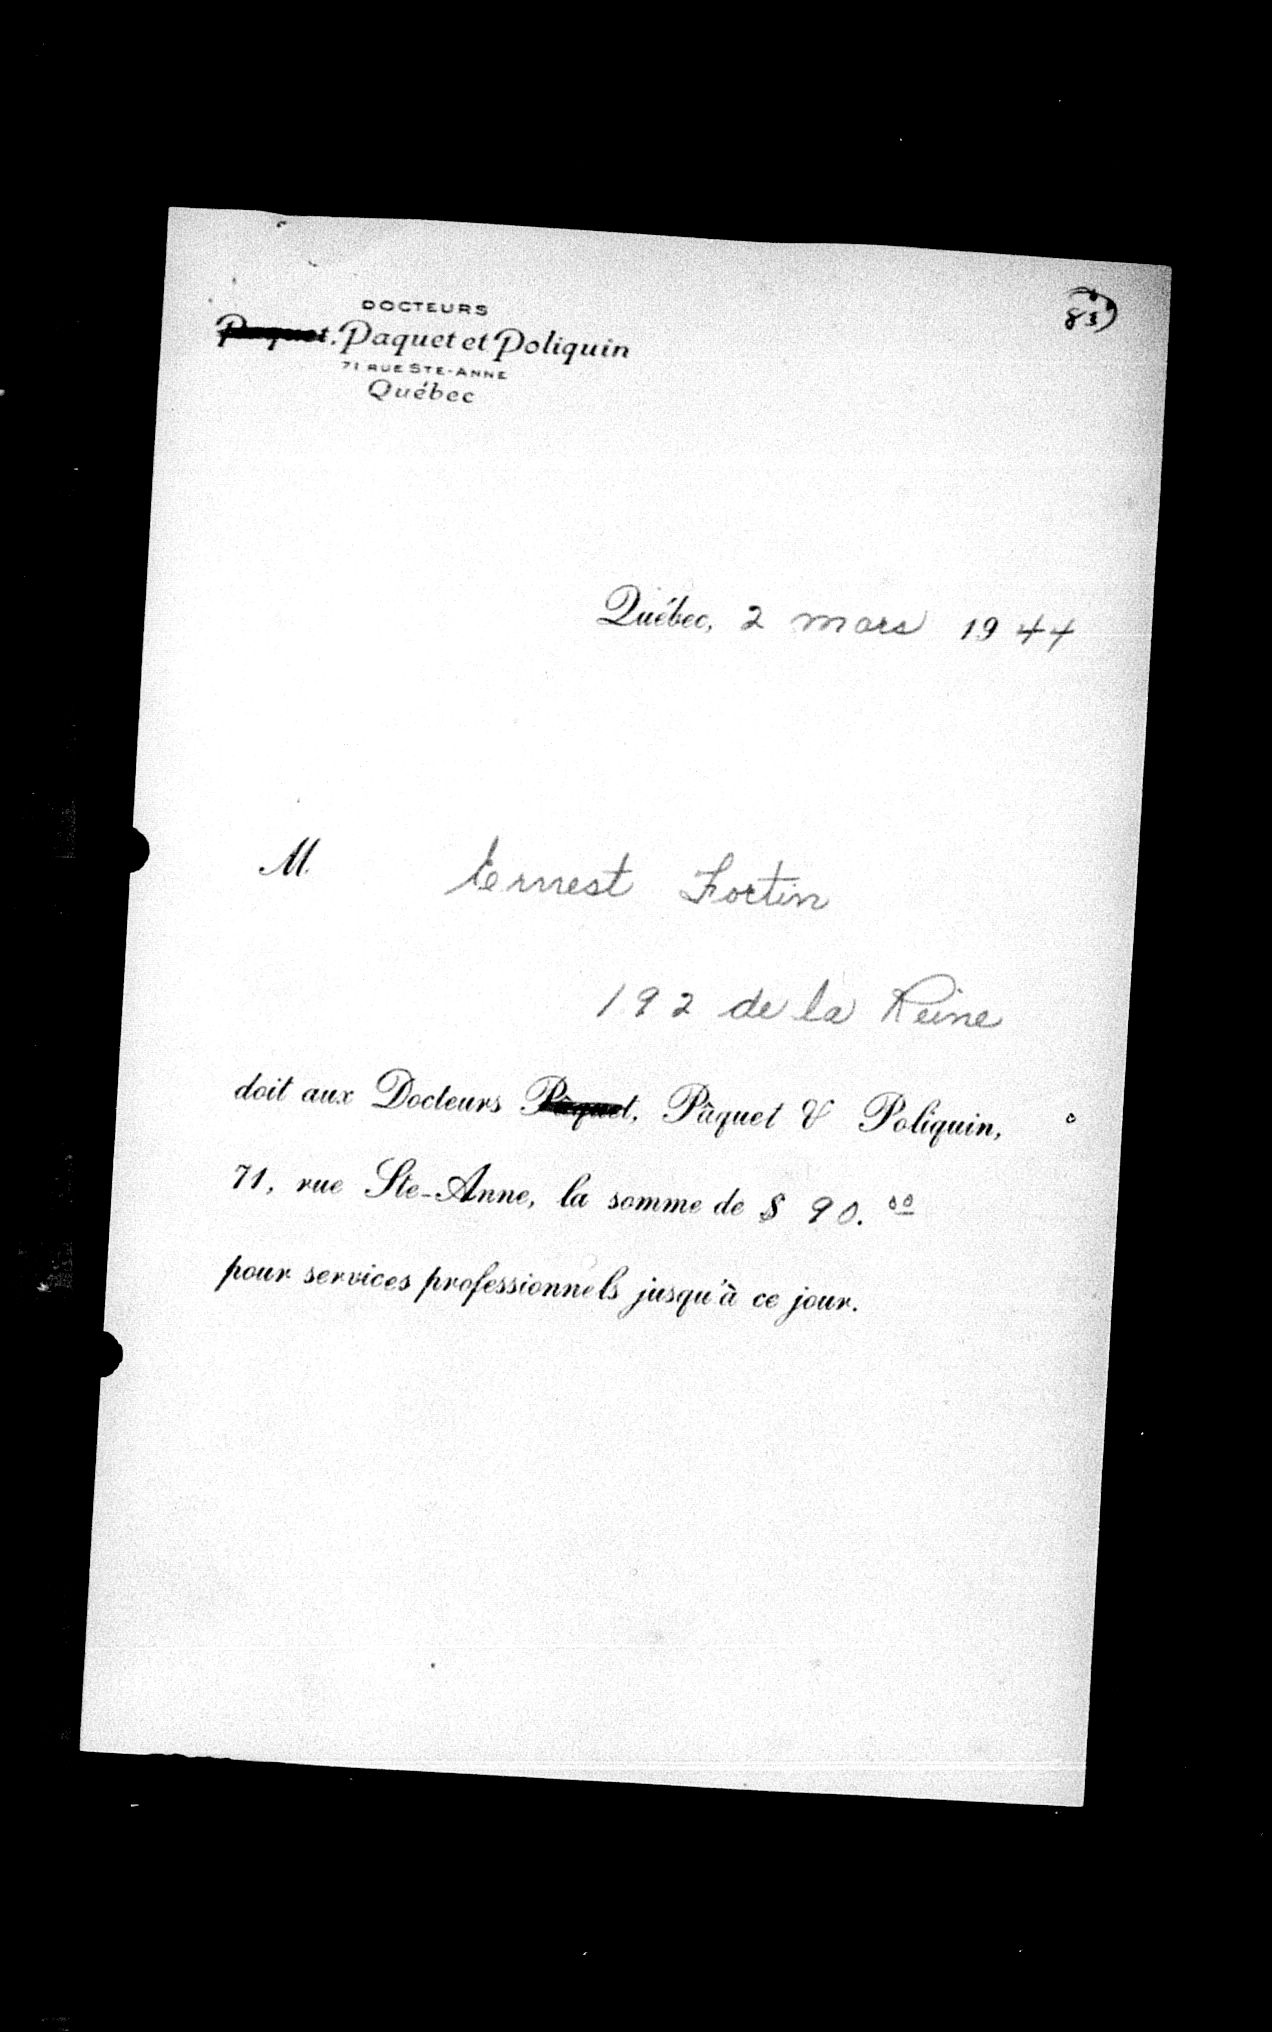 DOCTEURS
Paquet, Paquet et Poliquin
71 RUE STE-ANNE
Québec
83)
Québec, 2 mars 1944
M. Ernest Fortin
192 de la Reine
doit aux Docteurs Pâquet, Pâquet & Poliquin,
71, rue Ste-Anne, la somme de $ 90.00
pour services professionnels jusqu'à ce jour.